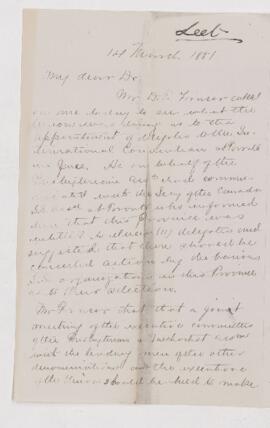 14 March 1881
My dear Dr.
Mr. D. Fraser called
on me to day to see what the
as to the
appointment of delegates to the In-
ternational Convention at Toronto
in June. He on behalf of the
Presbyterians had commu-
nicated with the Secy of the Canada
S.S. Assn at Toronto who informed
him that this Province was
entitled to eleven (11) delegates and
suggested that there should be
concerted action by the various
S.S. organizations in this Province
as to their selection.
Mr Fraser that that a joint
meeting of the executive committees
of the Presbyterian & Methodist assns
with the leading men of the other
denominations and the executive
of the Union should be held to make